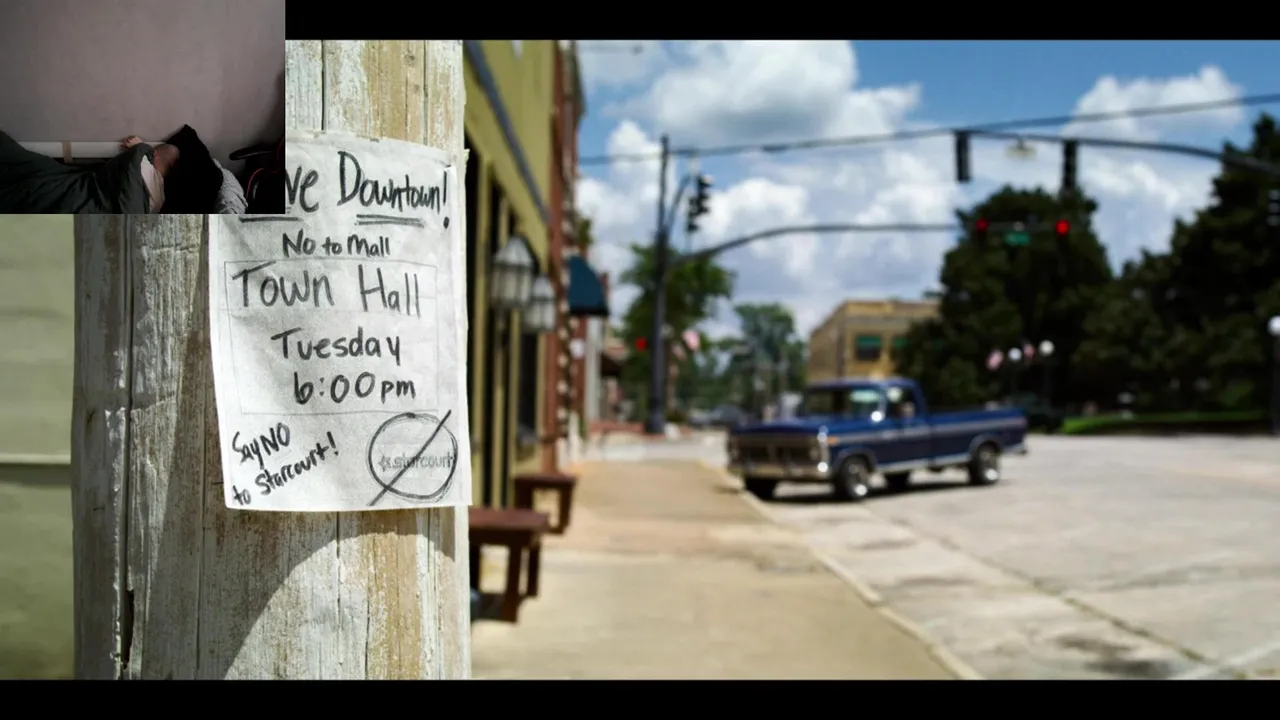 ve Downtown!
No to Mall
Town Hall
Tuesday
6:00pm
Say NO
to Starcourt!
starcourt